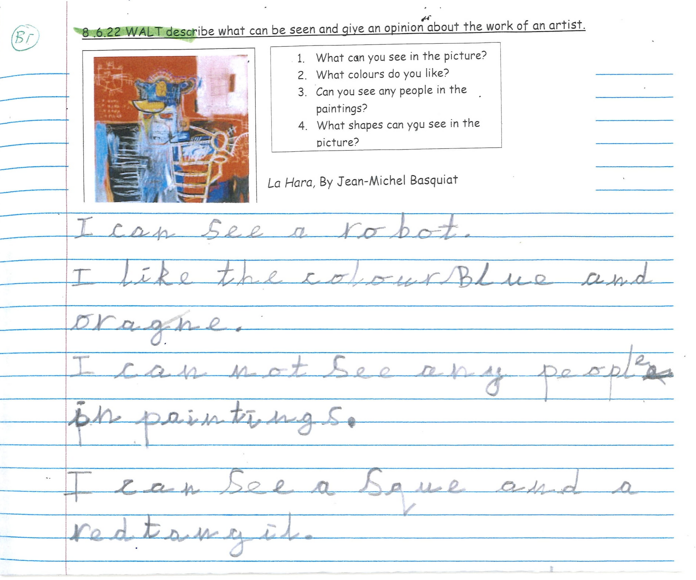 BI
8.6.22 WALT describe what can be seen and give an opinion about the work of an artist.
1. What can you see in the picture?
2. What colours do you like?
3. Can you see any people in the
paintings?
4. What shapes can you see in the
picture?
La Hara, By Jean-Michel Basquiat
I can see a robot.
I like the colour Blue and
oragne.
I can not see any people
in paintings.
I can see a sque and a
redtangil.